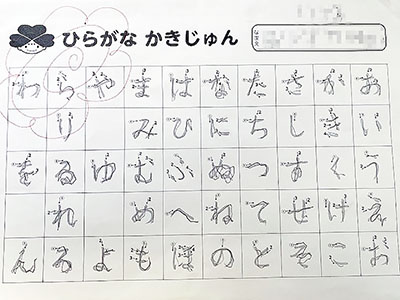 ひらがな かきじゅん
あいうえお
かきくけこ
さしすせそ
たちつてと
なにぬねの
はひふへほ
まみむめも
やゆよ
らりるれろ
わをん